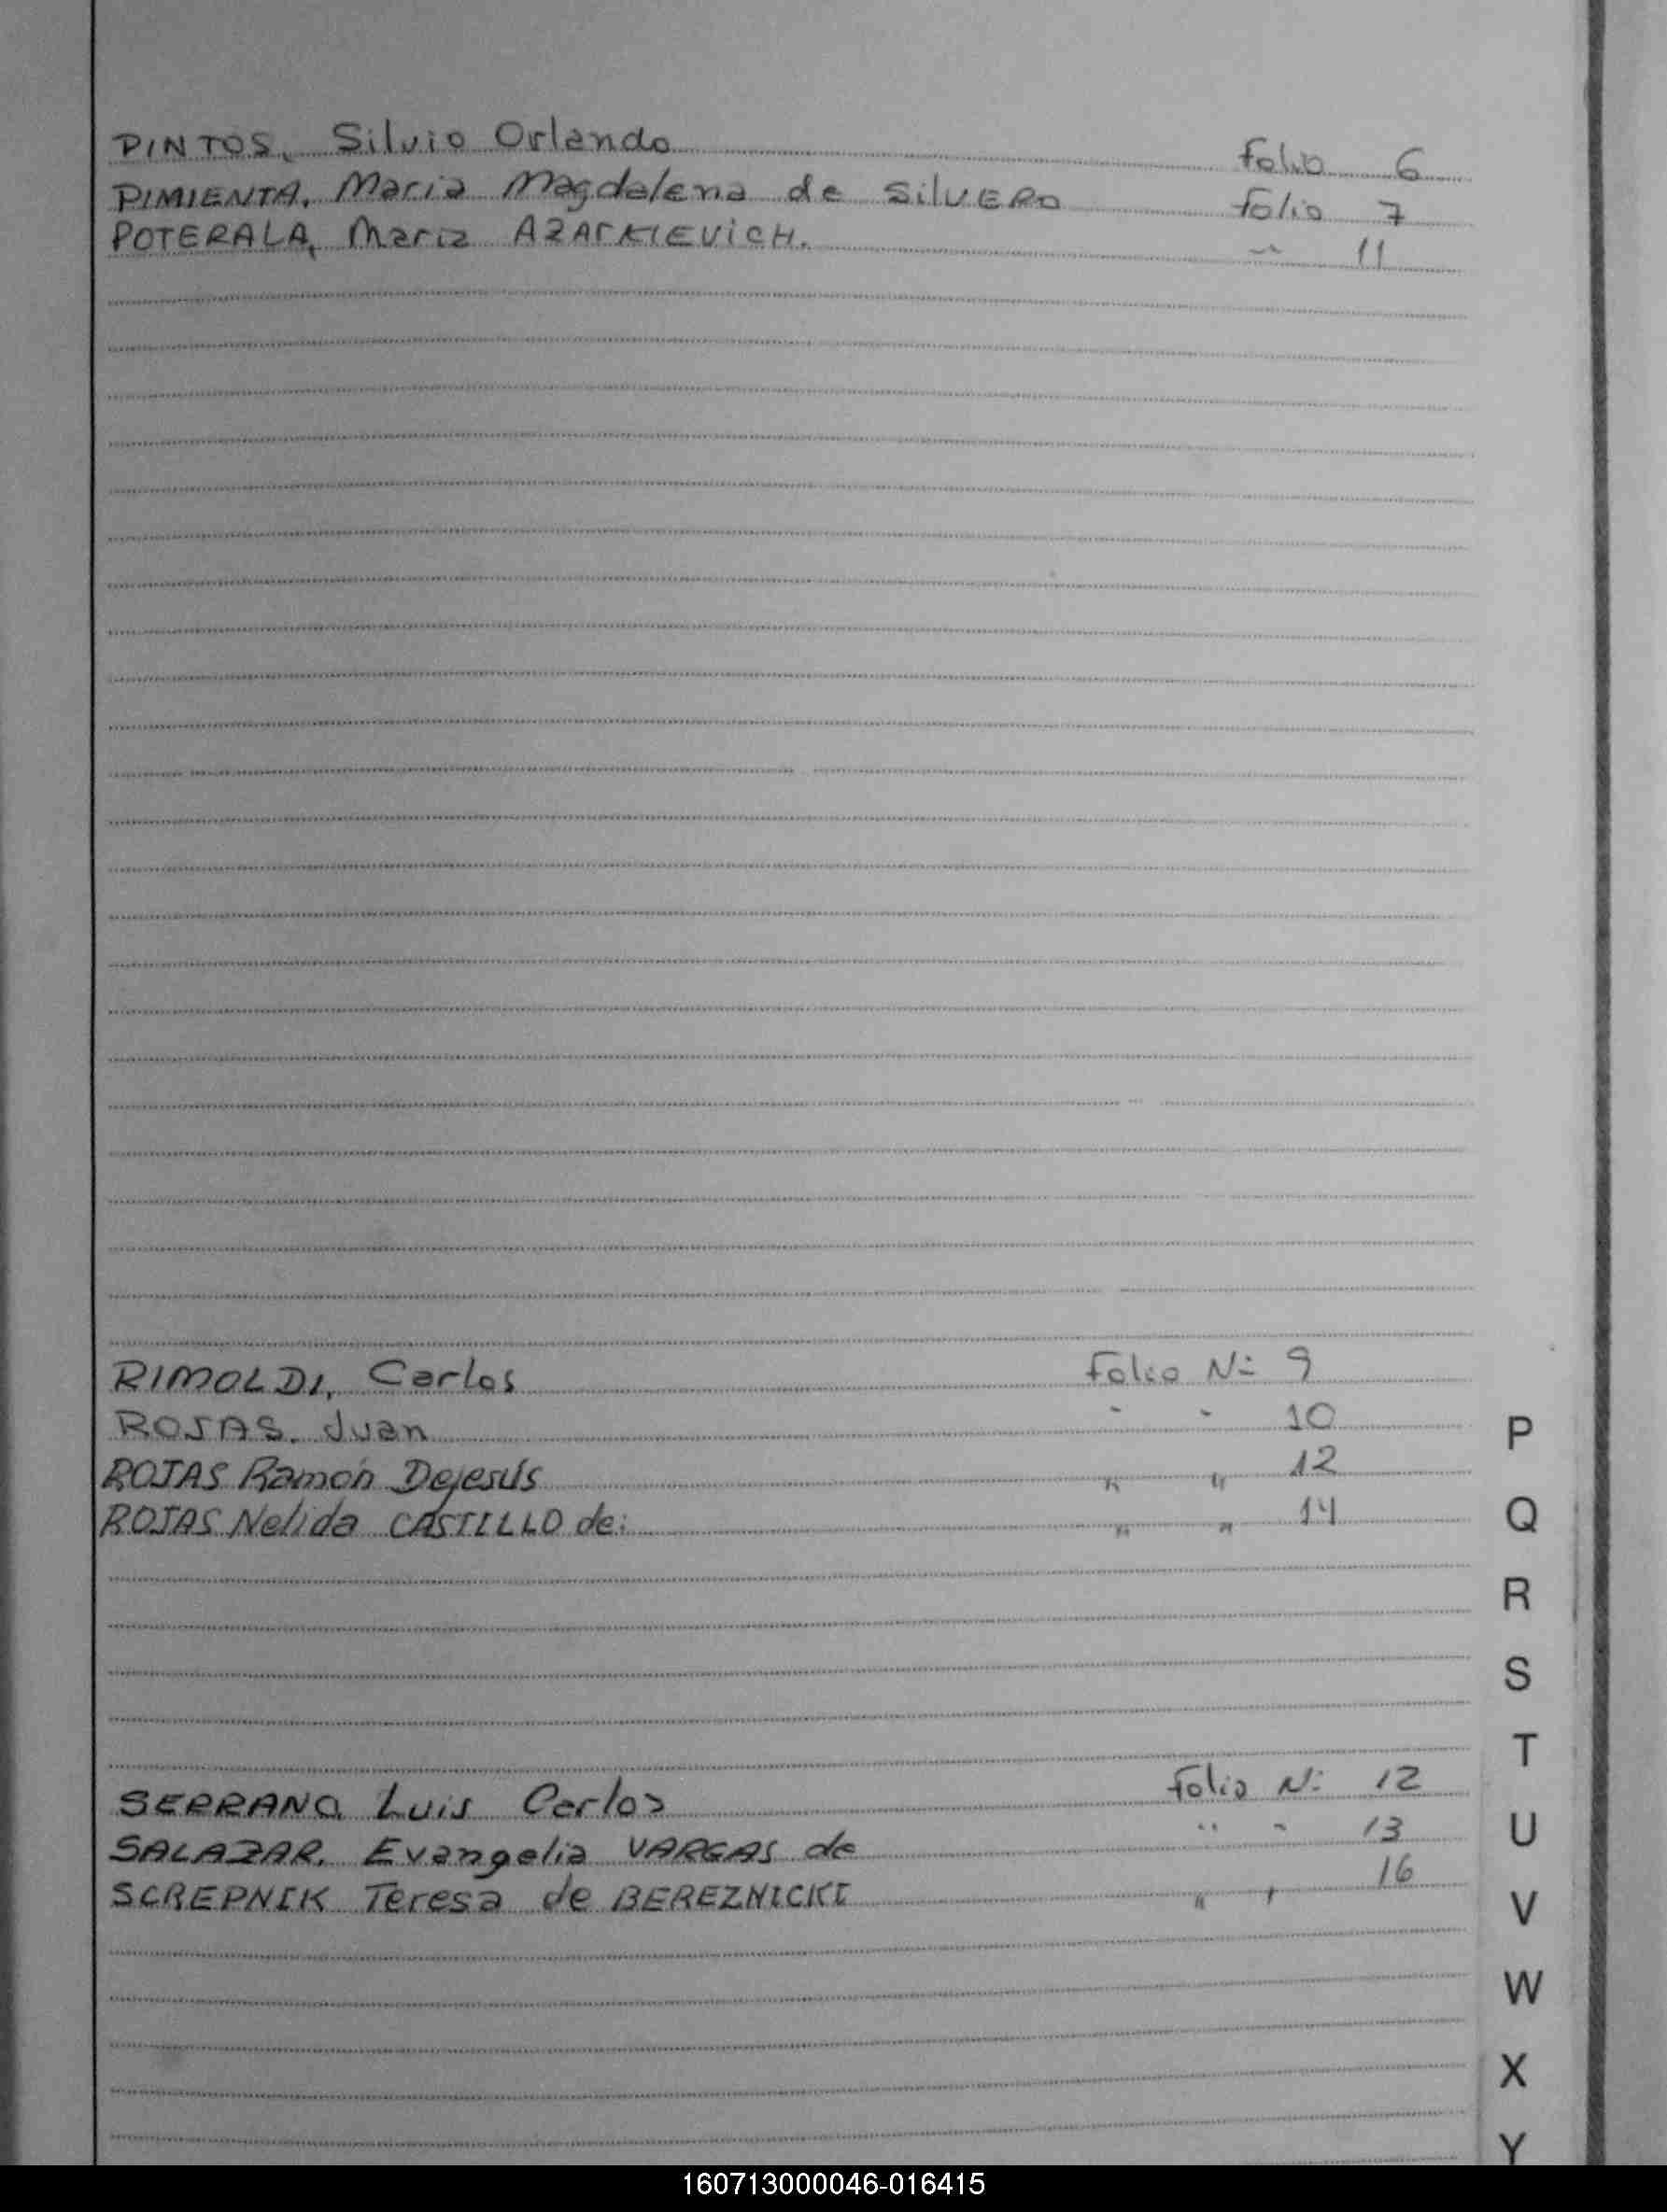 PINTOS, Silvio Orlando Folio 6
PIMIENTA, Maria Magdalena de SilVERO folio 7
POTERALA, Maria AZARKIEVICH. " 11
RIMOLDI, Carlos Folio Nº 9
ROJAS, Juan " " 10
ROJAS Ramón Dejesús " " 12
ROJAS Nelida CASTILLO de: " " 14
SERRANO Luis Carlos Folio Nº 12
SALAZAR, Evangelia VARGAS de " " 13
SCREPNIK Teresa de BEREZNICKI " " 16
P
Q
R
S
T
U
V
W
X
Y
160713000046-016415